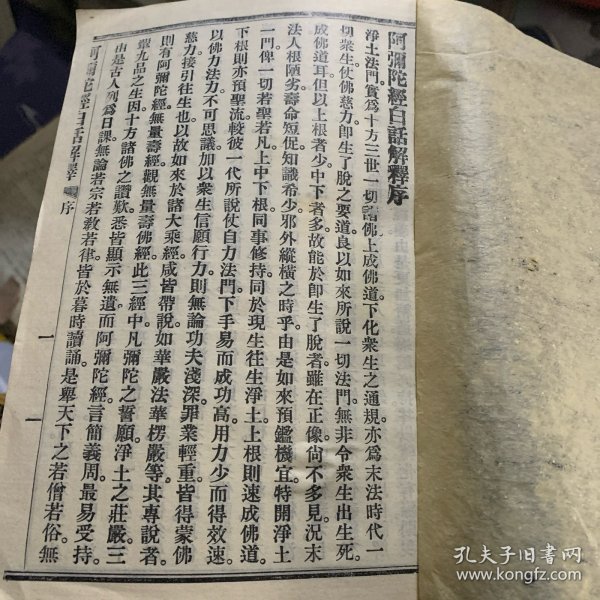 阿彌陀經白話解釋序
淨土法門。實爲十方三世一切諸佛上成佛道。下化衆生之通規。亦爲末法時代一
切衆生。仗佛慈力。卽生了脫之要道。良以如來所說一切法門。無非令衆生出生死。
成佛道耳。但以上根者少。中下者多。故能於卽生了脫者。雖在正像。尙不多見。況末
法人根陋劣。壽命短促。知識希少。邪外縱橫之時乎。由是如來預鑑機宜。特開淨土
一門。俾一切若聖若凡。上中下根。同事修持。同於現生往生淨土。上根則速成佛道。
下根則亦預聖流。較彼一代所說仗自力法門。下手易而成功高。用力少而得效速。
以佛力法力不可思議。加以衆生信願行力。則無論功夫淺深。罪業輕重。皆得蒙佛
慈力。接引往生也。以故如來於諸大乘經。咸皆帶說。如華嚴法華楞嚴等。其專說者。
則有阿彌陀經。無量壽經。觀無量壽佛經。此三經中。凡彌陀之誓願。淨土之莊嚴。三
輩九品之生因。十方諸佛之讚歎。悉皆顯示無遺。而阿彌陀經。言簡義周。最易受持。
由是古人列爲日課。無論若宗若敎若律。皆於暮時讀誦。是舉天下之若僧若俗。無
阿彌陀經白話解釋 序 一
孔夫子旧书网
www.kongfz.com